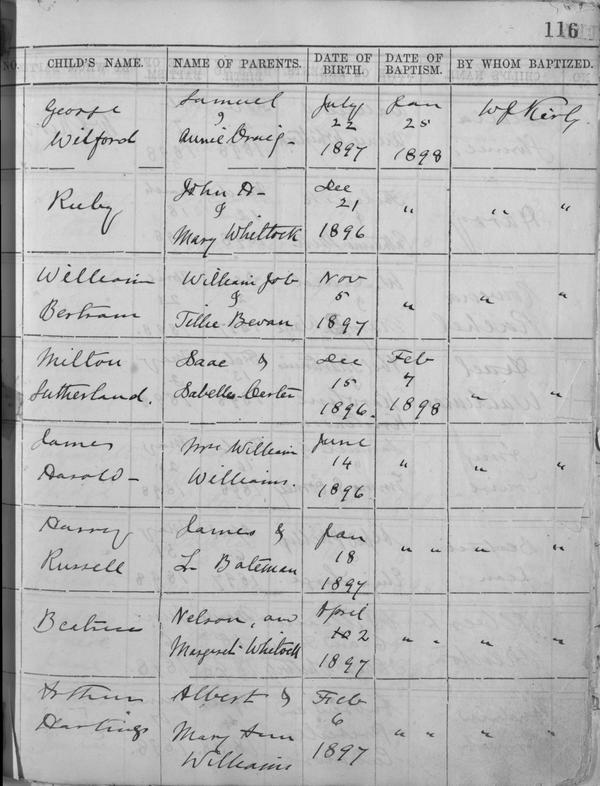 116
NO. CHILD'S NAME. NAME OF PARENTS. DATE OF BIRTH. DATE OF BAPTISM. BY WHOM BAPTIZED.
George Samuel July Jan W J Kirby
& 22 25
Wilford Annie Craig 1897 1898
John A Dec
Ruby & 21 " " "
Mary Whitlock 1896
William William Job Nov
& 5 " " "
Bertram Tillie Bevan 1897
Milton Isaac & Dec Feb
15 7 " "
Sutherland. Isabella 1896. 1898
James Mrs William June
14 " " "
Harold Williams. 1896
Harry James & Jan
18 " " " "
Russell L Bateman 1897
Nelson, and April
Beatrice 2 " " " "
Margaret Whitlock 1897
Arthur Albert & Feb
6
Hartings Mary Ann 1897 " " " "
Williams